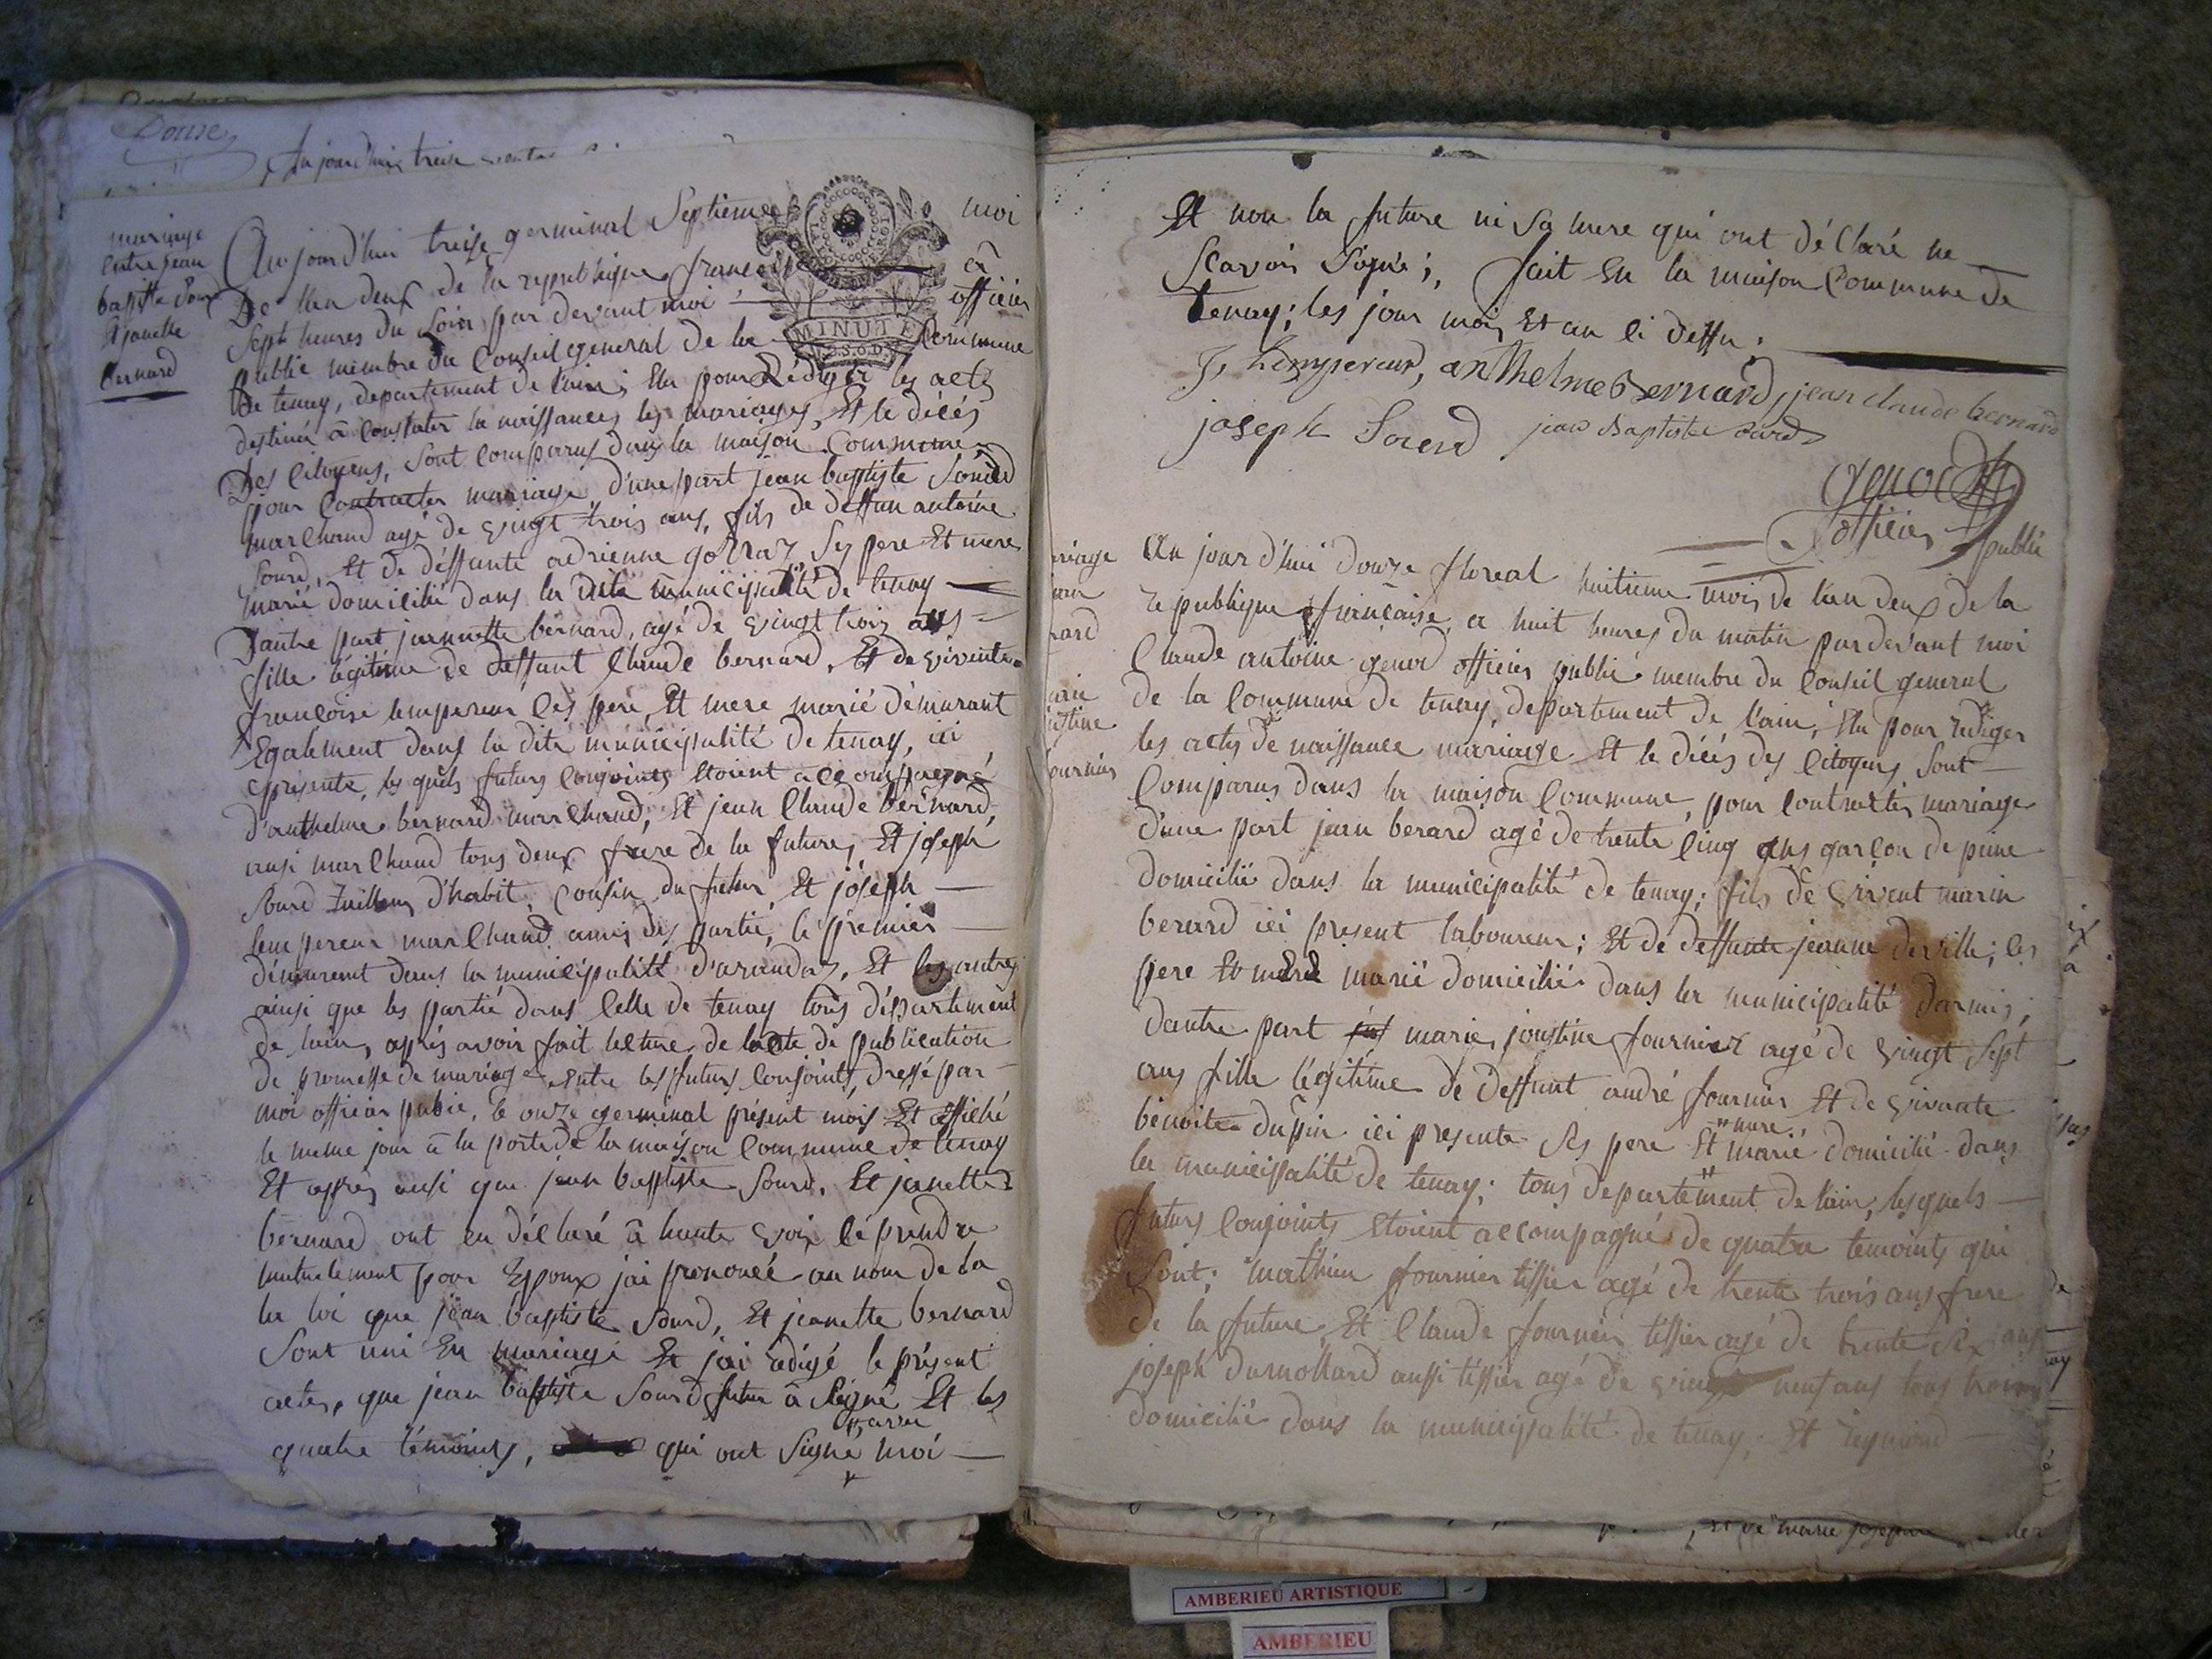 Douze
Aujourd'hui treise
mariage
entre jean
baptiste Sourd
Et janette
bernard
Aujourd'hui treise germinal Septieme moi
De l'an deux de la republique francoise à
Seph heures du Soir par devant moi officier
public membre du Conseil general de la Commune
De tenay, departement de l'ain; Elu pour Rédiger les acts
destinée à Constater la naissances les mariages, Et le décés
Des Citoyens, Sont Comparus dans la maison Commune
pour Contracter mariage, d'une part jean baptiste Sourd
marChand agé de vingt trois ans, fils de deffun antoine
Sourd, Et de déffunte adrienne gorraz Ses pere Et mere
marié domicilié dans la dite municipalité de tenay
D'autre part jannette bernard, agé de vingt trois ans
fille légitime de deffunt Claude bernard, Et de vivente
francoise lempereur Ces pere, Et mere marié démurant
Egalement dans la dite municipalité de tenay, ici
presente, les quels futurs Conjoints Etoient accompagné
d'anthelme bernard marChand, Et jean Claude bernard,
ausi marChand tous deux frere de la future, Et joseph
Sourd Tailleur d'habit, Cousin du futur, Et joseph
lempereur marChand amis des partie, le premier
démurent dans la municipalité d'arandaz, Et les autres
ainsi que les partie dans Celle de tenay tous département
de l'ain, aprés avoir fait lecture de l'acte de publication
de promesse de mariage entre les futurs Conjoints, dressé par
moi officier pubic, le onze germinal présent mois Et affiché
le meme jour à la porte de la maison Commune de tenay
Et apprés ausi que jean baptiste Sourd, Et janette
bernard ont eu déclaré à haute voix Ce prendre
mutuelement pour Epoux jai prononcé au nom de la
la loi que jean baptiste Sourd, Et jeanette bernard
Sont uni En mariage Et jai rédigé le présent
acte, que jean baptiste Sourd futur à Signé Et les
quatre témoins, qui ont Signé avec moi
Et non la future ni Sa mere qui ont déClaré ne
Scavoir Signé; fait En la maison Commune de
tenay; les jour mois Et an Ci dessu;
J. Lempereur, anthelme Bernard, jean claude bernard
joseph Sourd jean Baptiste sourd
genod
officier public
riage
ard
arie
ustine
ournier
Au jour d'hui Douze floreal huitieme mois de l'an deux de la
republique française a huit heures du matin pardevant moi
Claude antoine genod officier public membre du Conseil general
de la Commune de tenay, departement de l'ain, Elu pour rediger
les actes de naissance mariage Et le décés des Citoyens, Sont
Comparus dans la maison Commune, pour Contracter mariage
d'une part jean berard agé de trente Cinq ans garçon de peine
domicilié dans la municipalité de tenay; fils de vivent marin
berard ici present laboureur; Et de deffunte jeanne deville; Ces
pere Et mere marié domicilié dans la municipalité darmis;
dautre part marie joustine fournier agé de vingt Sept
ans fille légitime de deffunt andré fournier Et de vivante
benoite dupin ici presente Ses pere Et mere marié domicilié dans
la municipalité de tenay; tous departement de l'ain, lesquels
futurs Conjoints Etoient accompagné de quatre temoints qui
Sont; mathieu fournier tissier agé de trente trois ans frere
De la future, Et Claude fournier tissier agé de trente Six ans
joseph dumollard aussi tissier agé de vingt neuf ans tous
domicilié dans la municipalité de tenay, Et
marie
AMBERIEU ARTISTIQUE
AMBERIEU